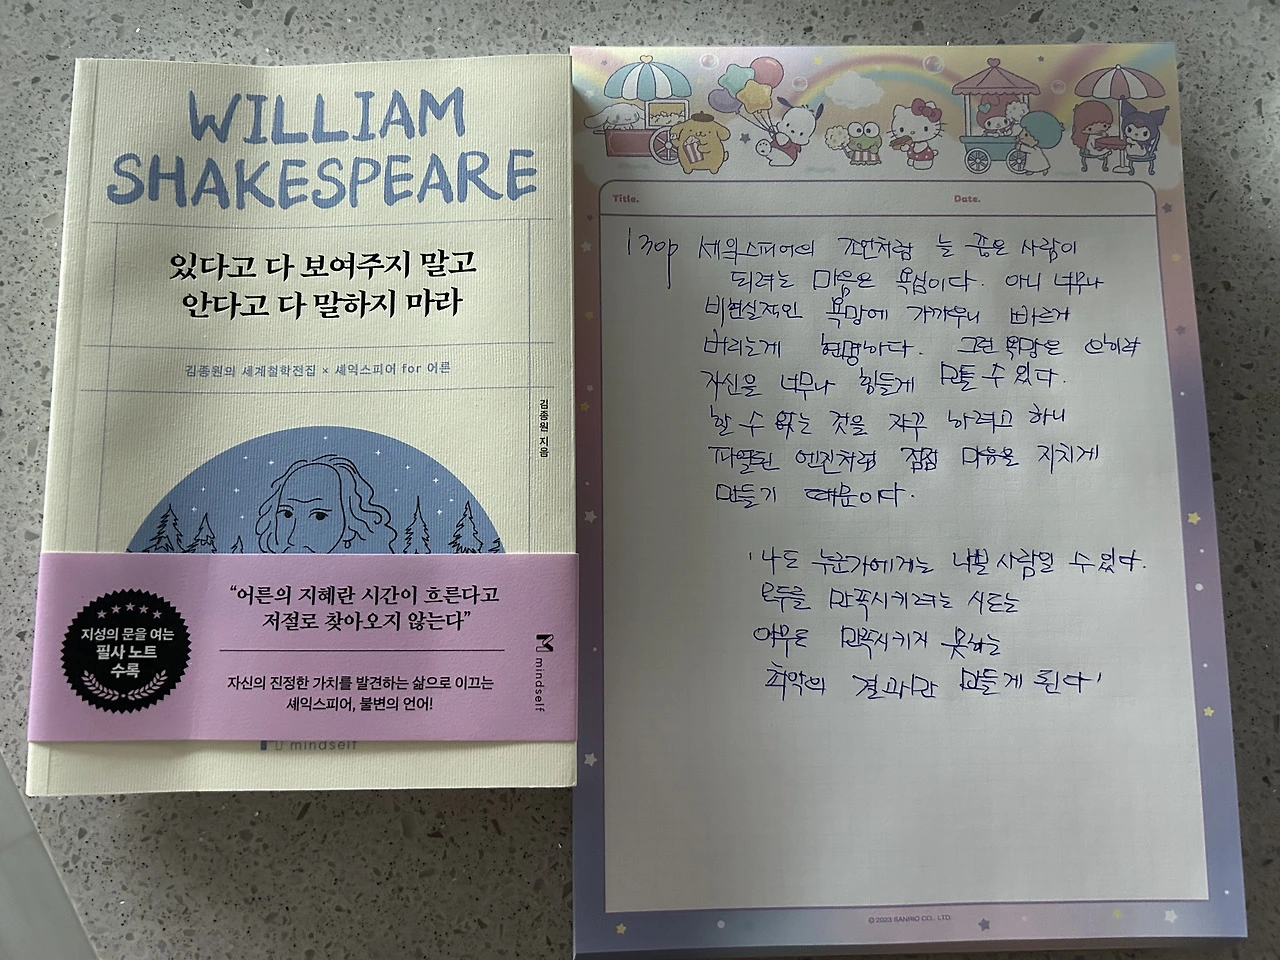 WILLIAM
SHAKESPEARE
있다고 다 보여주지 말고
안다고 다 말하지 마라
김종원의 세계철학전집 × 셰익스피어 for 어른
김종원 지음
“어른의 지혜란 시간이 흐른다고
저절로 찾아오지 않는다”
지성의 문을 여는
필사 노트
수록
자신의 진정한 가치를 발견하는 삶으로 이끄는
셰익스피어, 불변의 언어!
mindself
mindself
Title.
Date.
130p 셰익스피어의 조언처럼 늘 좋은 사람이
되려는 마음은 욕심이다. 아니 너무나
비현실적인 욕망에 가까우니 빠르게
버리는게 현명하다. 그런 욕망은 오히려
자신을 너무나 힘들게 만들 수 있다.
할 수 없는 것을 자꾸 하려고 하니
과열된 엔진처럼 점점 마음을 지치게
만들기 때문이다.
'나도 누군가에게는 나쁜 사람일 수 있다.
모두를 만족시키려는 시도는
아무도 만족시키지 못하는
최악의 결과만 만들게 된다'
© 2023 SANRIO CO., LTD.